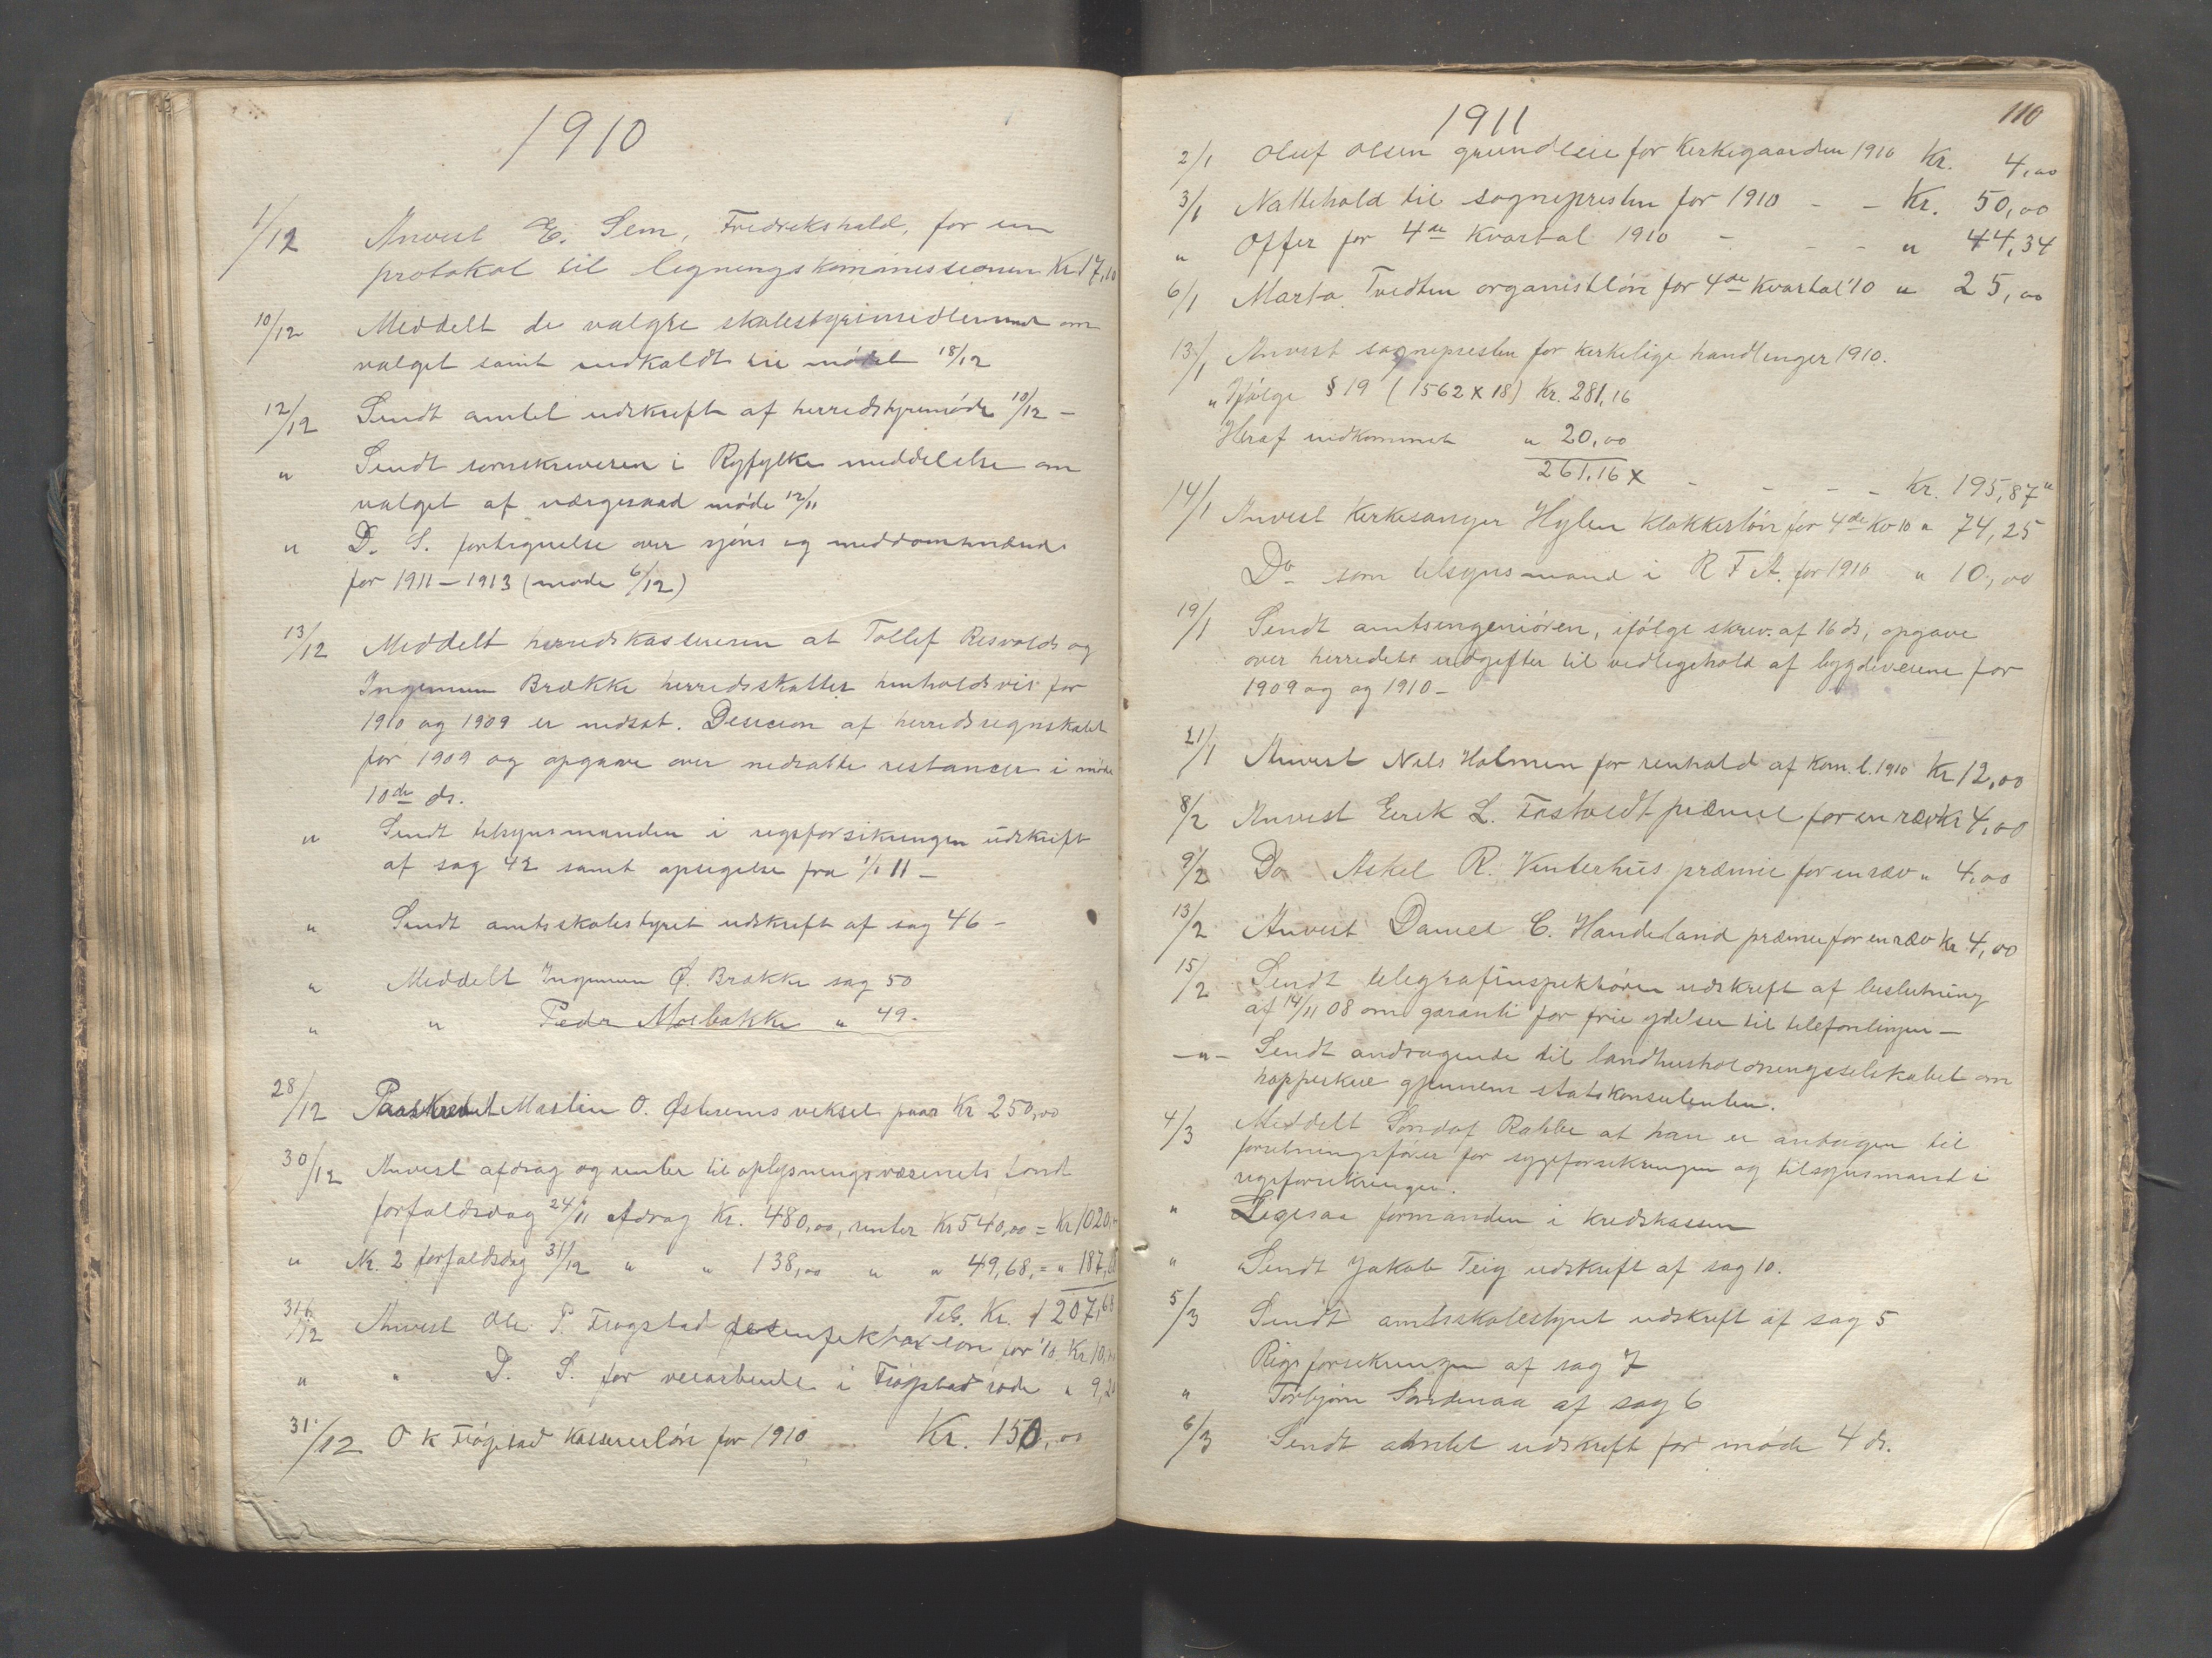 1910
1/12 Anvist E. Sem, Fredrikshald, for en
protokol til ligningskommissionen Kr 17,10
10/12 Meddelt de valgte skolestyremedlemmer om
valget samt indkaldt til mødet 18/12
12/12 Sendt amtet udskrift af herredstyremøde 10/12 –
" Sendt sorenskriveren i Ryfylke meddelelse om
valget af værgeraad møde 12/11
" D. S. fortegnelse over sjøns og meddomsmænd
for 1911 – 1913 (møde 6/12)
13/12 Meddelt herredskassereren at Tollef Risvolds og
Ingemun Brække herredsskatter henholdsvis for
1910 og 1909 er nedsat. Desicion af herredsregnskabet
for 1909 og opgave over nedsatte restancer i møde
10de ds.
" Sendt tilsynsmanden i rigsforsikringen udskrift
af sag 42 samt opsigelse fra 1/1 11 –
" Sendt amtsskolestyret udskrift af sag 46 –
" Meddelt Ingemun Ø. Brække sag 50
" " Peder Moebakke " 49.
28/12 Paaskrevet Martin O. Østrems veksel paa Kr 250,00
30/12 Anvist afdrag og renter til oplysningsvæsenets fond
forfaldsdag 24/11 Afdrag Kr. 480,00, renter Kr 540,00 = Kr 1020,00
" Nr. 2 forfaldsdag 31/12 " " 138,00 " " 49,68, = " 187,68
Til. Kr. 1207,68
31/12 Anvist Ole P. Frøgstad desenfektør løn for '10. Kr 10,00
" " D. S. for veiarbeide i Frøystad rode " 9,20
31/12 O K Frøgstad kassererløn for 1910 Kr. 150,00
1911
110
2/1 Oluf Olsen grundleie for Kirkegaarden 1910 Kr. 4,00
3/1 Nattehold til sognepresten for 1910 – – Kr. 50,00
" Offer for 4de Kvartal 1910 – – – " 44,34
6/1 Marta Tvedten organistløn for 4de Kvartal '10 " 25,00
13/1 Anvist sognepresten for kirkelige handlinger 1910.
" Ifølge § 19 (1562 x 18) Kr. 281,16
Heraf indkommet " 20,00
261,16 x – – – – Kr. 195,87"
14/1 Anvist Kirkesanger Hylen Klokkerløn for 4de Kv 10 " 74,25
Do som tilsynsmand i R F A. for 1910 " 10,00
19/1 Sendt amtsingeniøren, ifølge skriv. af 16 ds, opgave
over herredets udgifter til vedligehold af bygdeveiene for
1909 og og 1910 –
21/1 Anvist Nils Holmen for renhold af Kom. l. 1910 Kr 12,00
8/2 Anvist Eirik L. Fostveidt præmie for en ræv kr 4,00
9/2 Do Askel R. Vinterhus præmie for en ræv " 4,00
13/2 Anvist Daniel C. Handeland præmie for en ræv kr 4,00
15/2 Sendt telegrafinspektøren udskrift af beslutning
af 14/11 08 om garanti for frie ydelser til telefonlinjen –
– " – Sendt andragende til landhusholdningsselskabet om
hoppeskue gjennem statskonsulenten.
4/3 Meddelt Sondof Rabbe at han er antagen til
forretningsfører for sygeforsikringen og tilsynsmand i
rigsforsikringen.
" Ligesaa formanden i Kredskassen
" Sendt Jakob Teig udskrift af sag 10.
5/3 Sendt amtsskolestyret udskrift af sag 5
Rigsforsikringen af sag 7
" Torbjørn Sandenaa af sag 6
6/3 Sendt amtet udskrift for møde 4 ds.